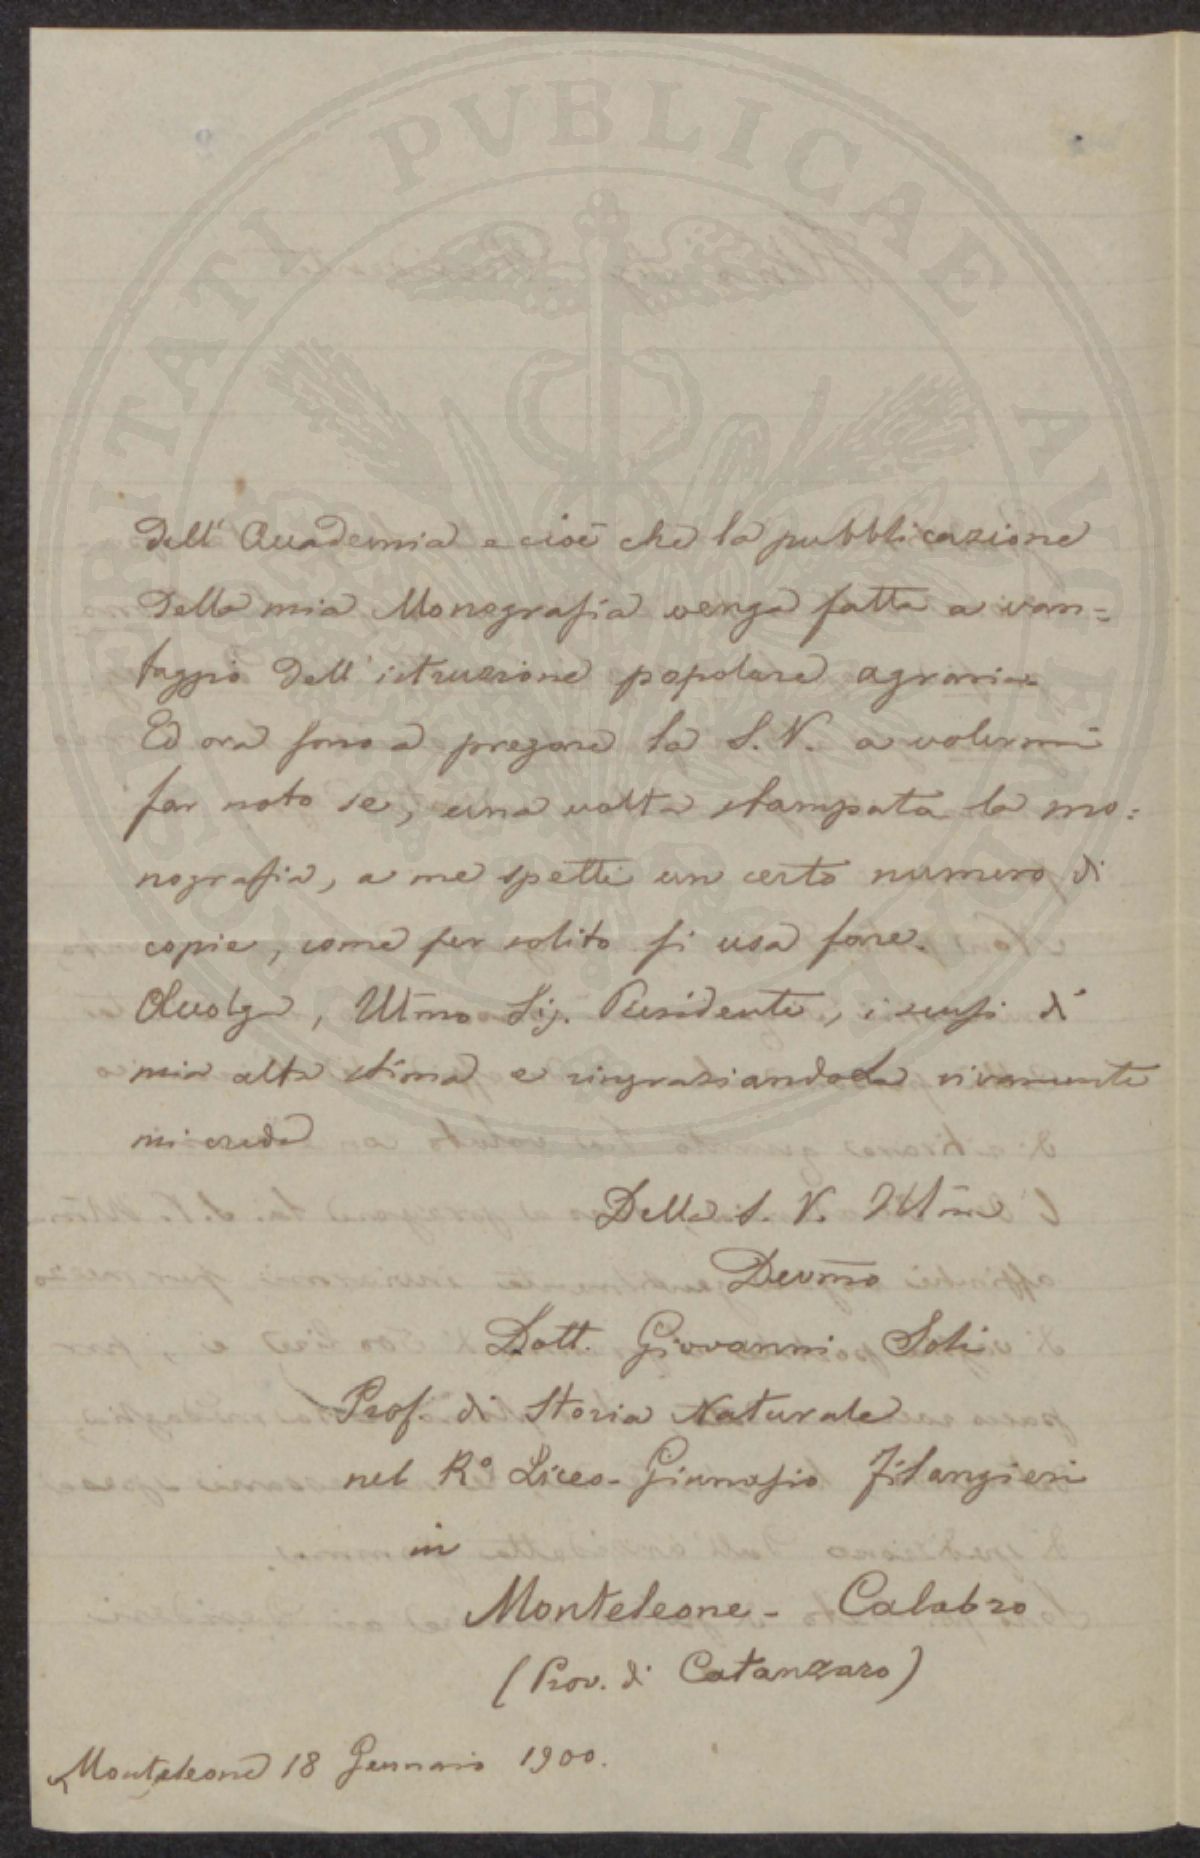 PROSPERITATI PVBLICAE AVGENDAE
dell' Accademia e cioè che la pubblicazione
della mia Monografia venga fatta a van=
taggio dell' istruzione popolare agraria.
Ed ora sono a pregare la S. V. a volermi
far noto se, una volta stampata la mo=
nografia, a me spetti un certo numero di
copie, come per solito si usa fare.
Accolga, Ill̃mo Sig. Presidente, i sensi di
mia alta stima e ringraziandola vivamente
mi creda
Della S. V. Ill̃ma
Devm̃o
Dott. Giovanni Soli
Prof. di Storia Naturale
nel R° Liceo-Ginnasio Filangieri
in
Monteleone - Calabro
(Prov. di Catanzaro)
Monteleone 18 Gennaio 1900.